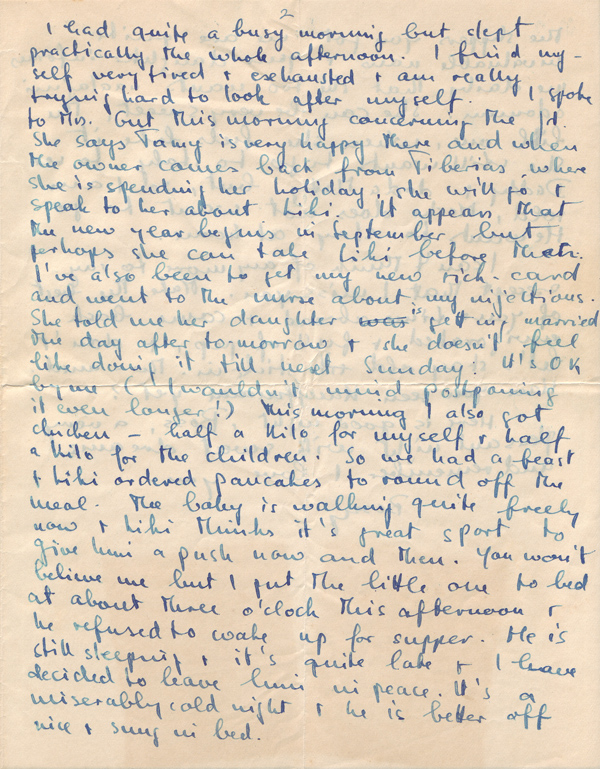 2
I had quite a busy morning but slept
practically the whole afternoon. I find my-
self very tired + exhausted + am really
trying hard to look after myself. I spoke
to Mrs. Gut this morning concerning the
She says Tamy is very happy there and when
the owner comes back from Tiberias, where
she is spending her holiday, she will go +
speak to her about Kiki. It appears that
the new year begins in September but
perhaps she can take Kiki before then.
I've also been to get my new sick-card
and went to the nurse about my injections.
She told me her daughter was is getting married
the day after to-morrow + she doesn't feel
like doing it till next Sunday. It's OK
by me (I wouldn't mind postponing
it even longer!) This morning I also got
chicken – half a kilo for myself + half
a kilo for the children. So we had a feast
+ Kiki ordered pancakes to round off the
meal. The baby is walking quite freely
now + Kiki thinks it's great sport to
give him a push now and then. You won't
believe me but I put the little one to bed
at about three o'clock this afternoon +
he refused to wake up for supper. He is
still sleeping + it's quite late + I have
decided to leave him in peace. It's a
miserably cold night + he is better off
nice + snug in bed.